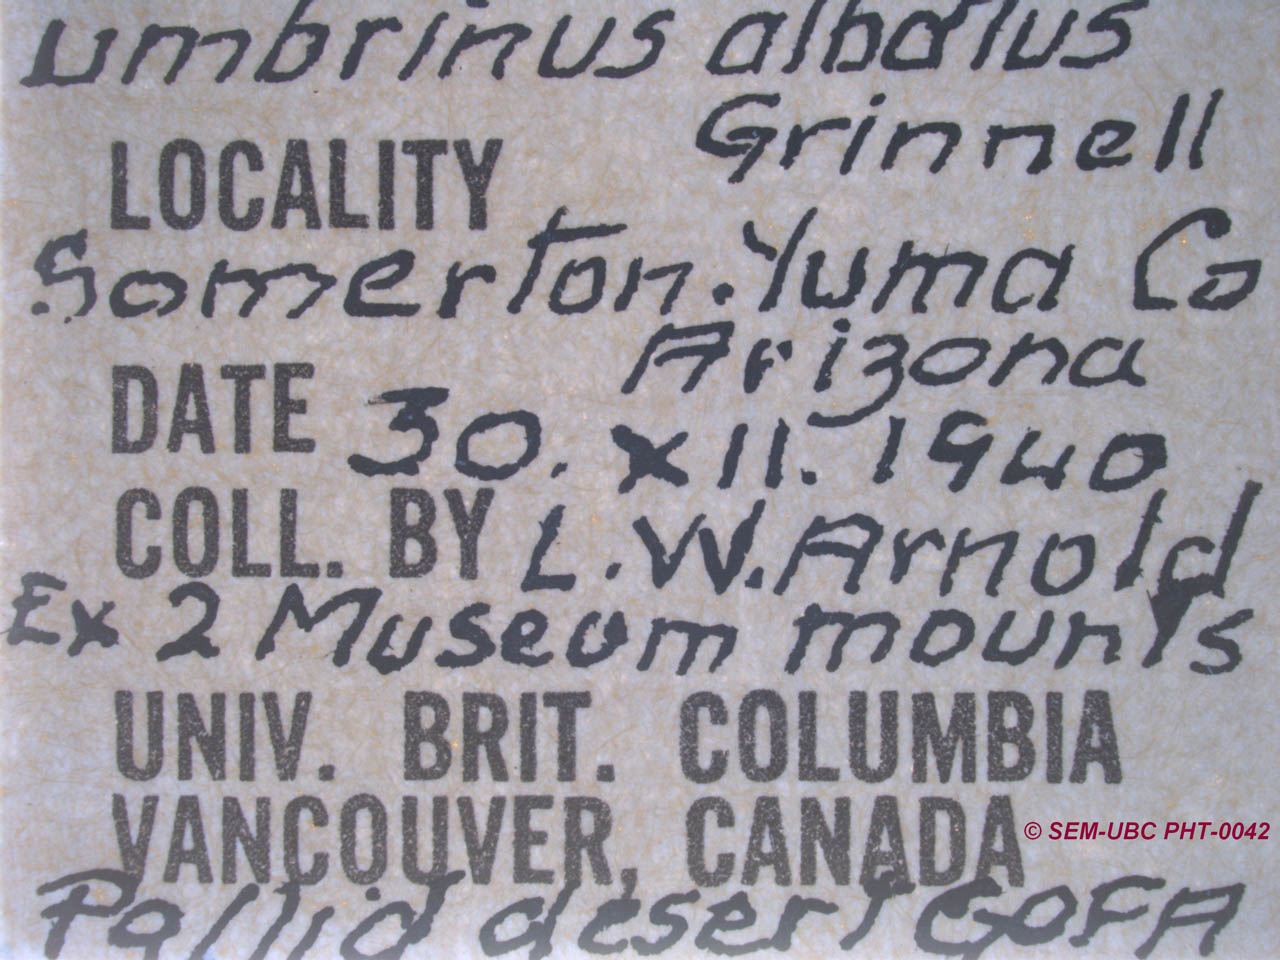 umbrinus albatus
Grinnell
LOCALITY
Somerton. Yuma Co
Arizona
DATE 30. XII. 1940
COLL. BY L. W. Arnold
Ex 2 Museum mounts
UNIV. BRIT. COLUMBIA
VANCOUVER, CANADA
© SEM-UBC PHT-0042
Pallid desert GOFA